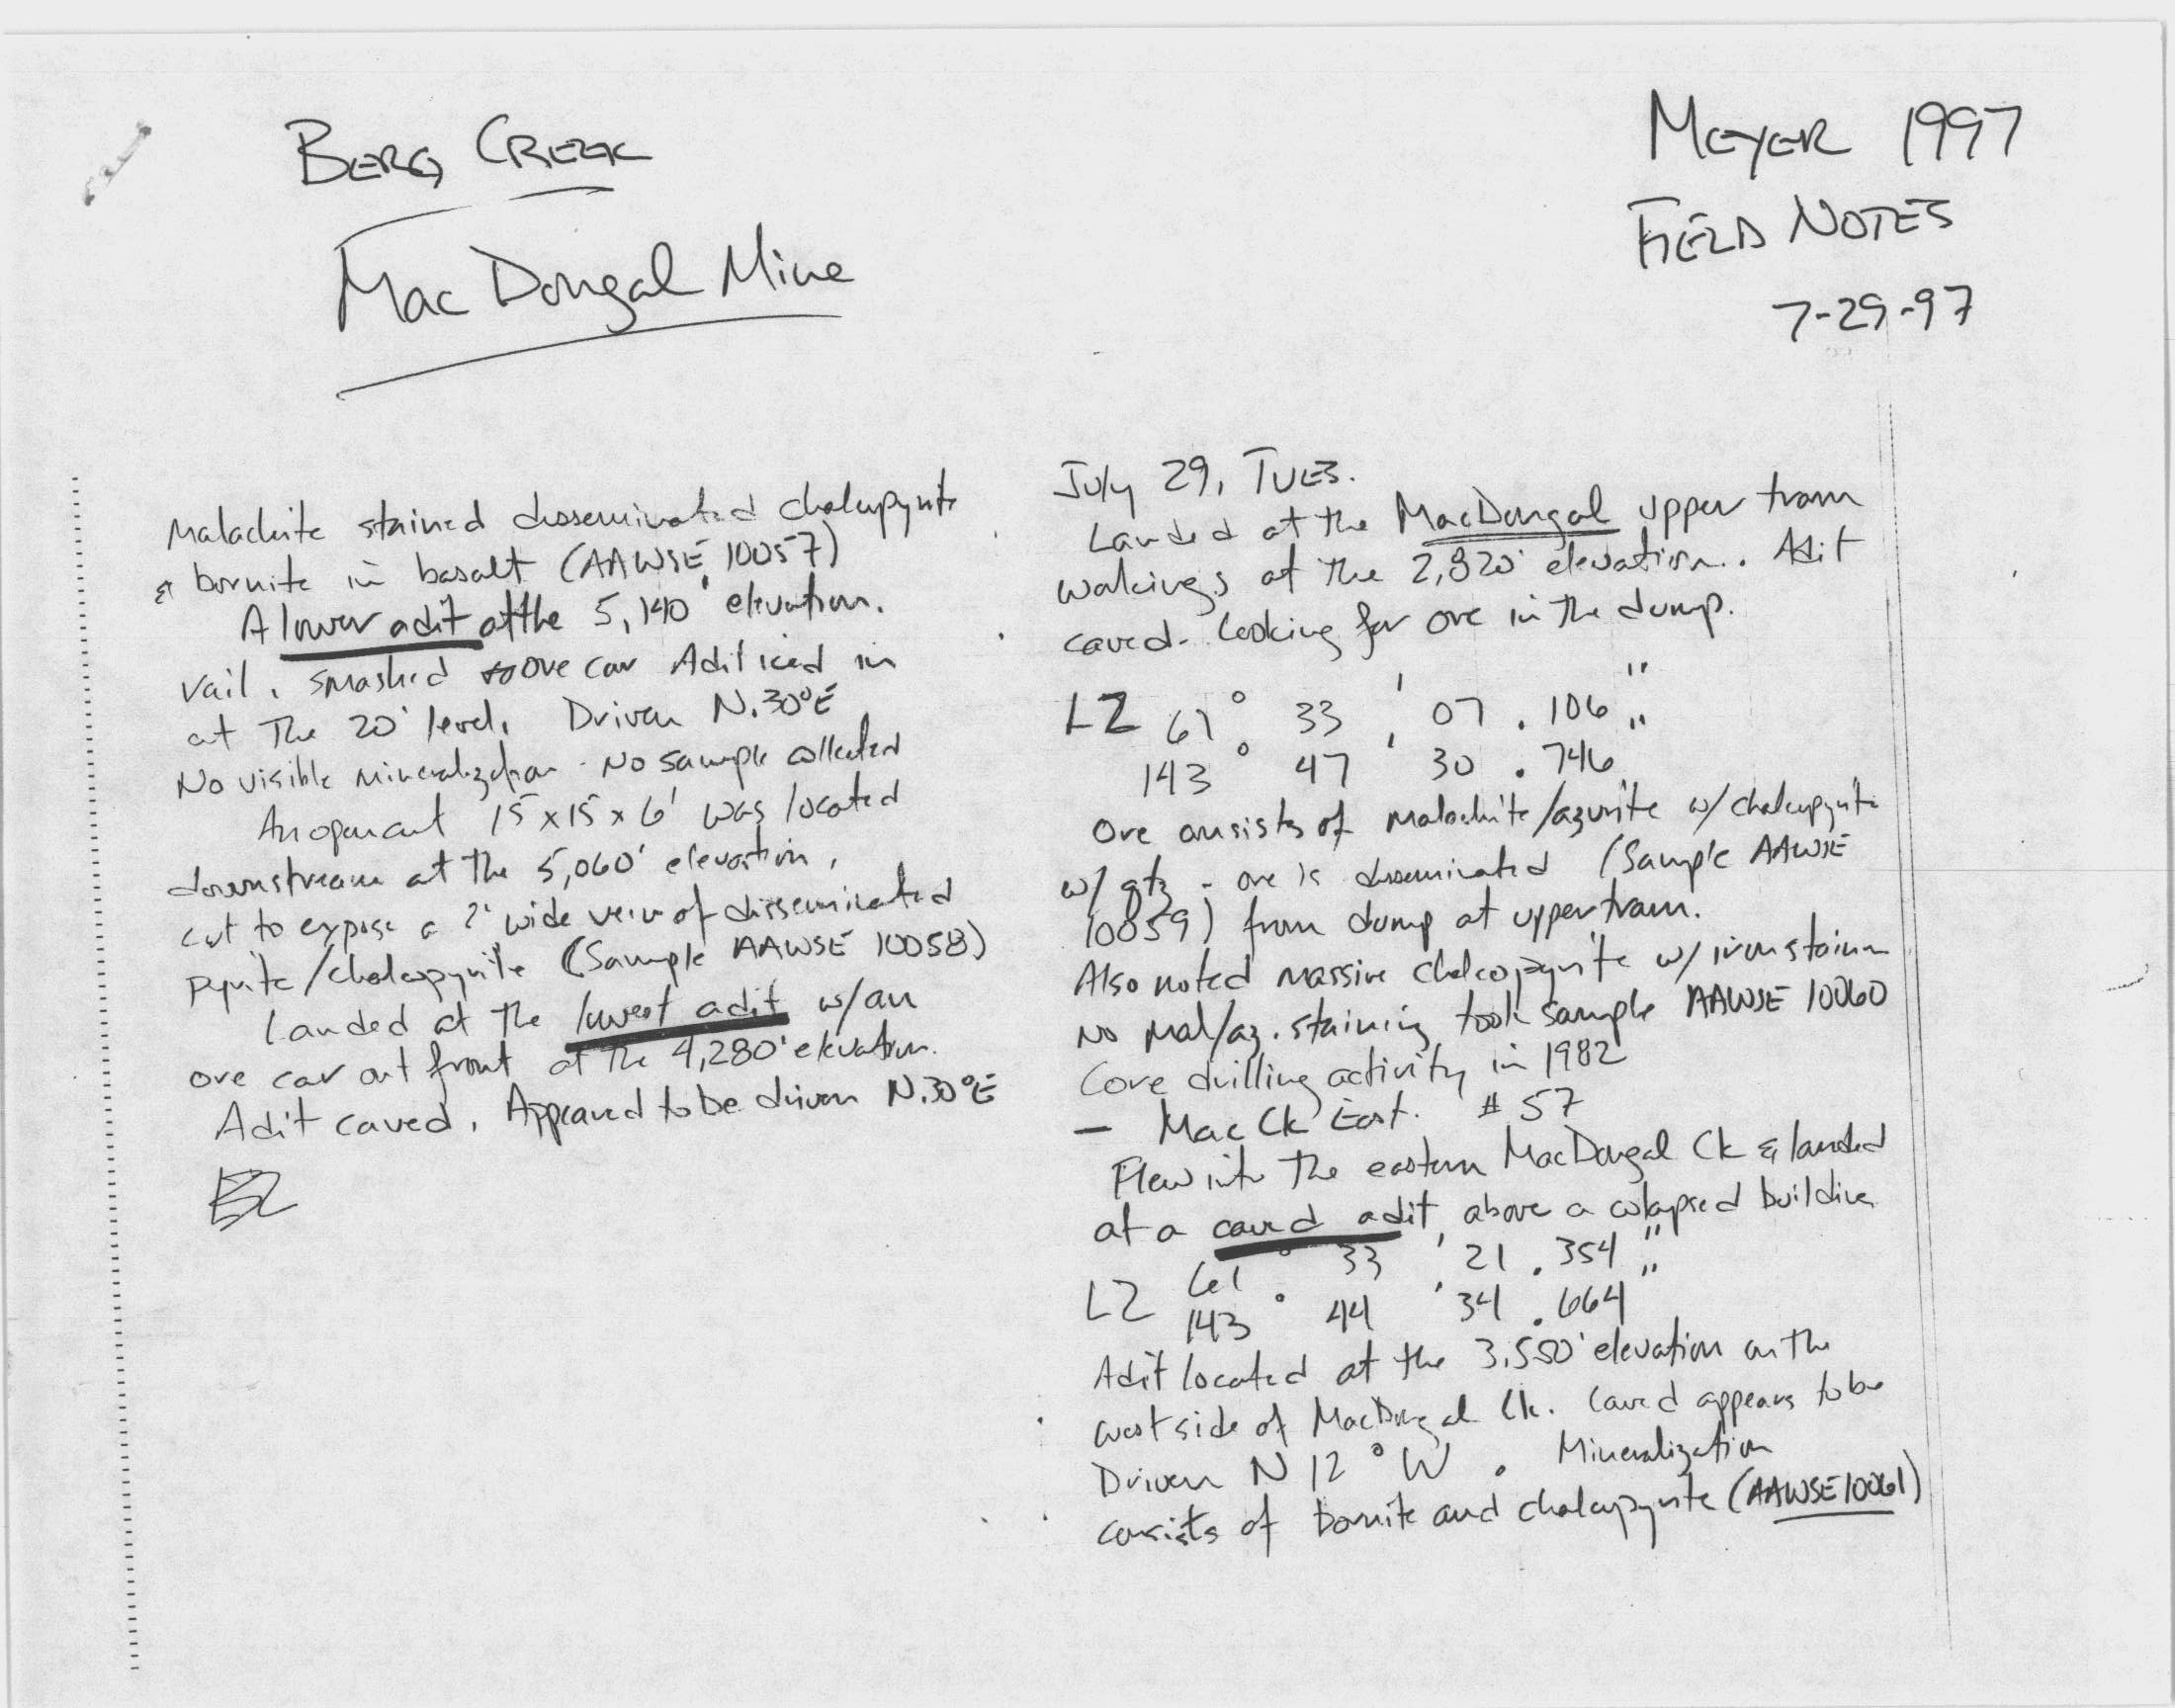 BERG CREEK
MacDougal Mine
MEYER 1997
FIELD NOTES
7-29-97
Malachite stained disseminated chalcopyrite
& bornite in basalt (AAWSE 10057)
A lower adit at the 5,140' elevation.
rail, smashed ore car Adit iced in
at the 20' level. Driven N.30°E
No visible mineralization - No sample collected
An open cut 15 x 15 x 6' was located
downstream at the 5,060' elevation,
cut to expose a 2' wide vein of disseminated
pyrite/chalcopyrite (Sample AAWSE 10058)
Landed at the lowest adit w/an
ore car out front at the 4,280' elevation.
Adit caved. Appeared to be driven N.30°E
July 29, TUES.
Landed at the MacDougal upper tram
workings at the 2,820' elevation. Adit
caved - looking for ore in the dump.
LZ 61° 33' 07.106"
143° 47' 30.746"
Ore consists of malachite/azurite w/chalcopyrite
w/ qtz - ore is disseminated (Sample AAWSE
10059) from dump at upper tram.
Also noted massive chalcopyrite w/ iron stain
No mal/az. staining took sample AAWSE 10060
Core drilling activity in 1982
- Mac Ck East. #57
Flew into the eastern MacDougal Ck & landed
at a caved adit above a colapsed building
LZ 61° 33' 21.354"
143° 44' 34.664"
Adit located at the 3,550' elevation on the
west side of MacDougal Ck. Caved appears to be
Driven N 12° W. Mineralization
consists of bornite and chalcopyrite (AAWSE 10061)